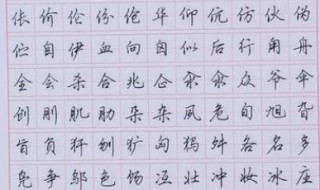 伥价伦份伧华仰伉仿伙伪
伫自伊血向囟似后行甪舟
全会杀合兆企汆氽众爷伞
创刖肌肋朵杂夙危旬旭旮
旨负犴刎犷匈犸舛各名多
凫争邬色饧冱壮冲妆冰庄